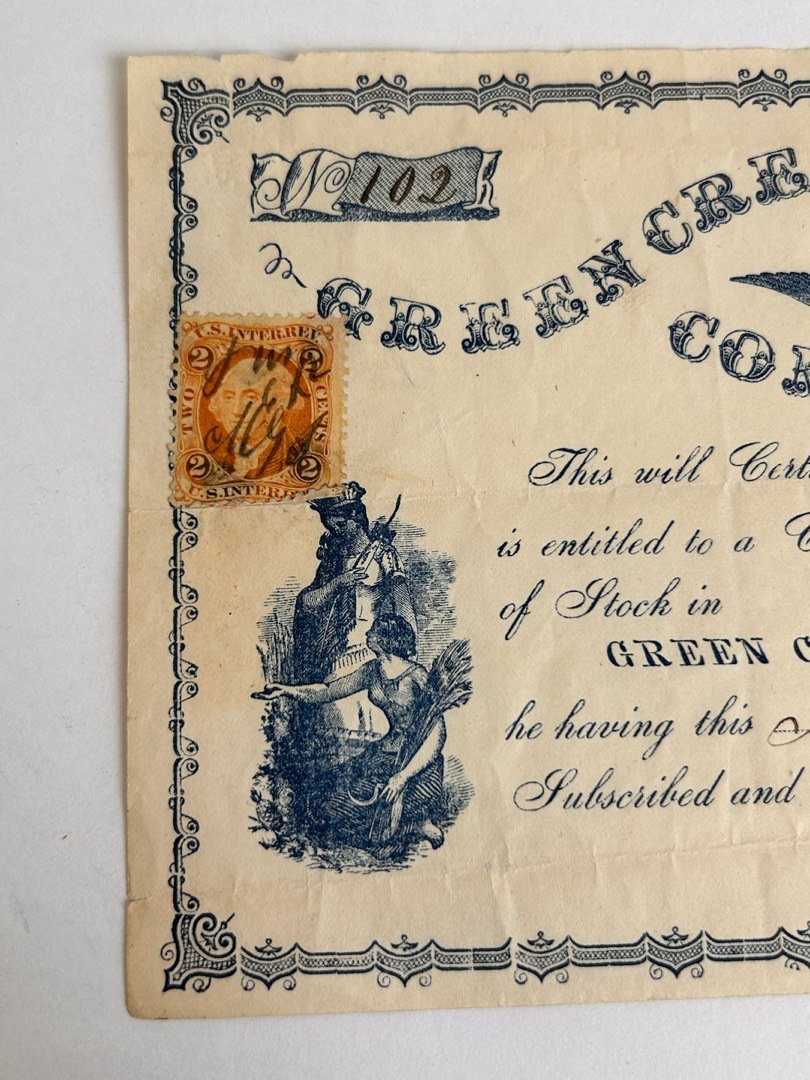 No 102
GREEN CRE
COR
U.S. INTER. REV.
2 2
TWO CENTS
2 2
U.S. INTER.
This will Certi
is entitled to a C
of Stock in
GREEN C
he having this
Subscribed and